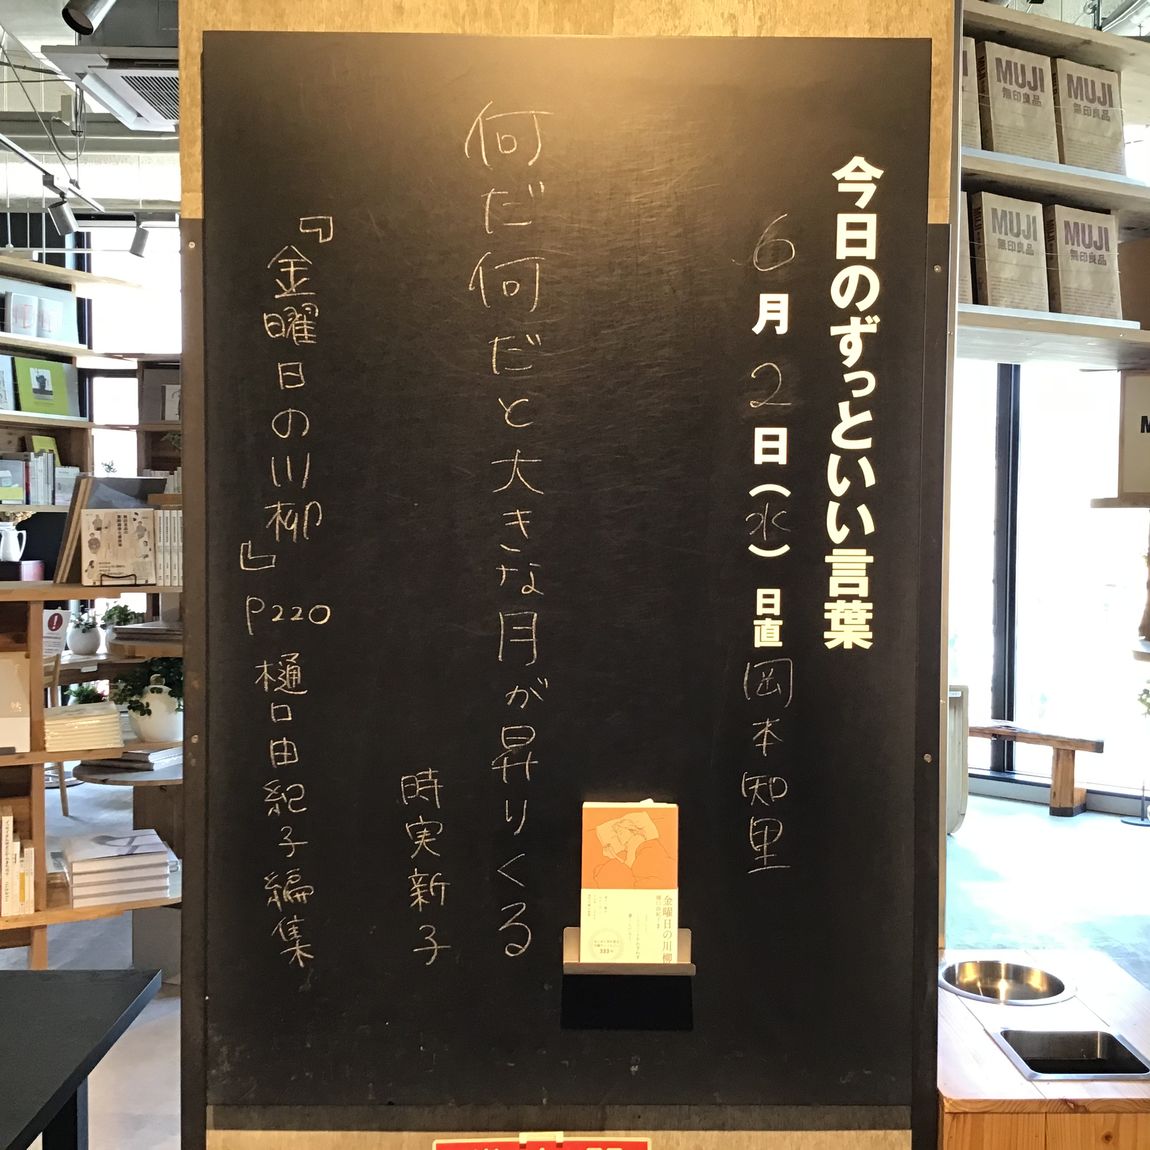 今日のずっといい言葉
6月2日(水) 日直 岡本知里
何だ何だと大きな月が昇りくる
時実新子
『金曜日の川柳』P220 樋口由紀子編集
金曜日の川柳
MUJI
無印良品
MUJI
無印良品
MUJI
無印良品
MUJI
無印良品